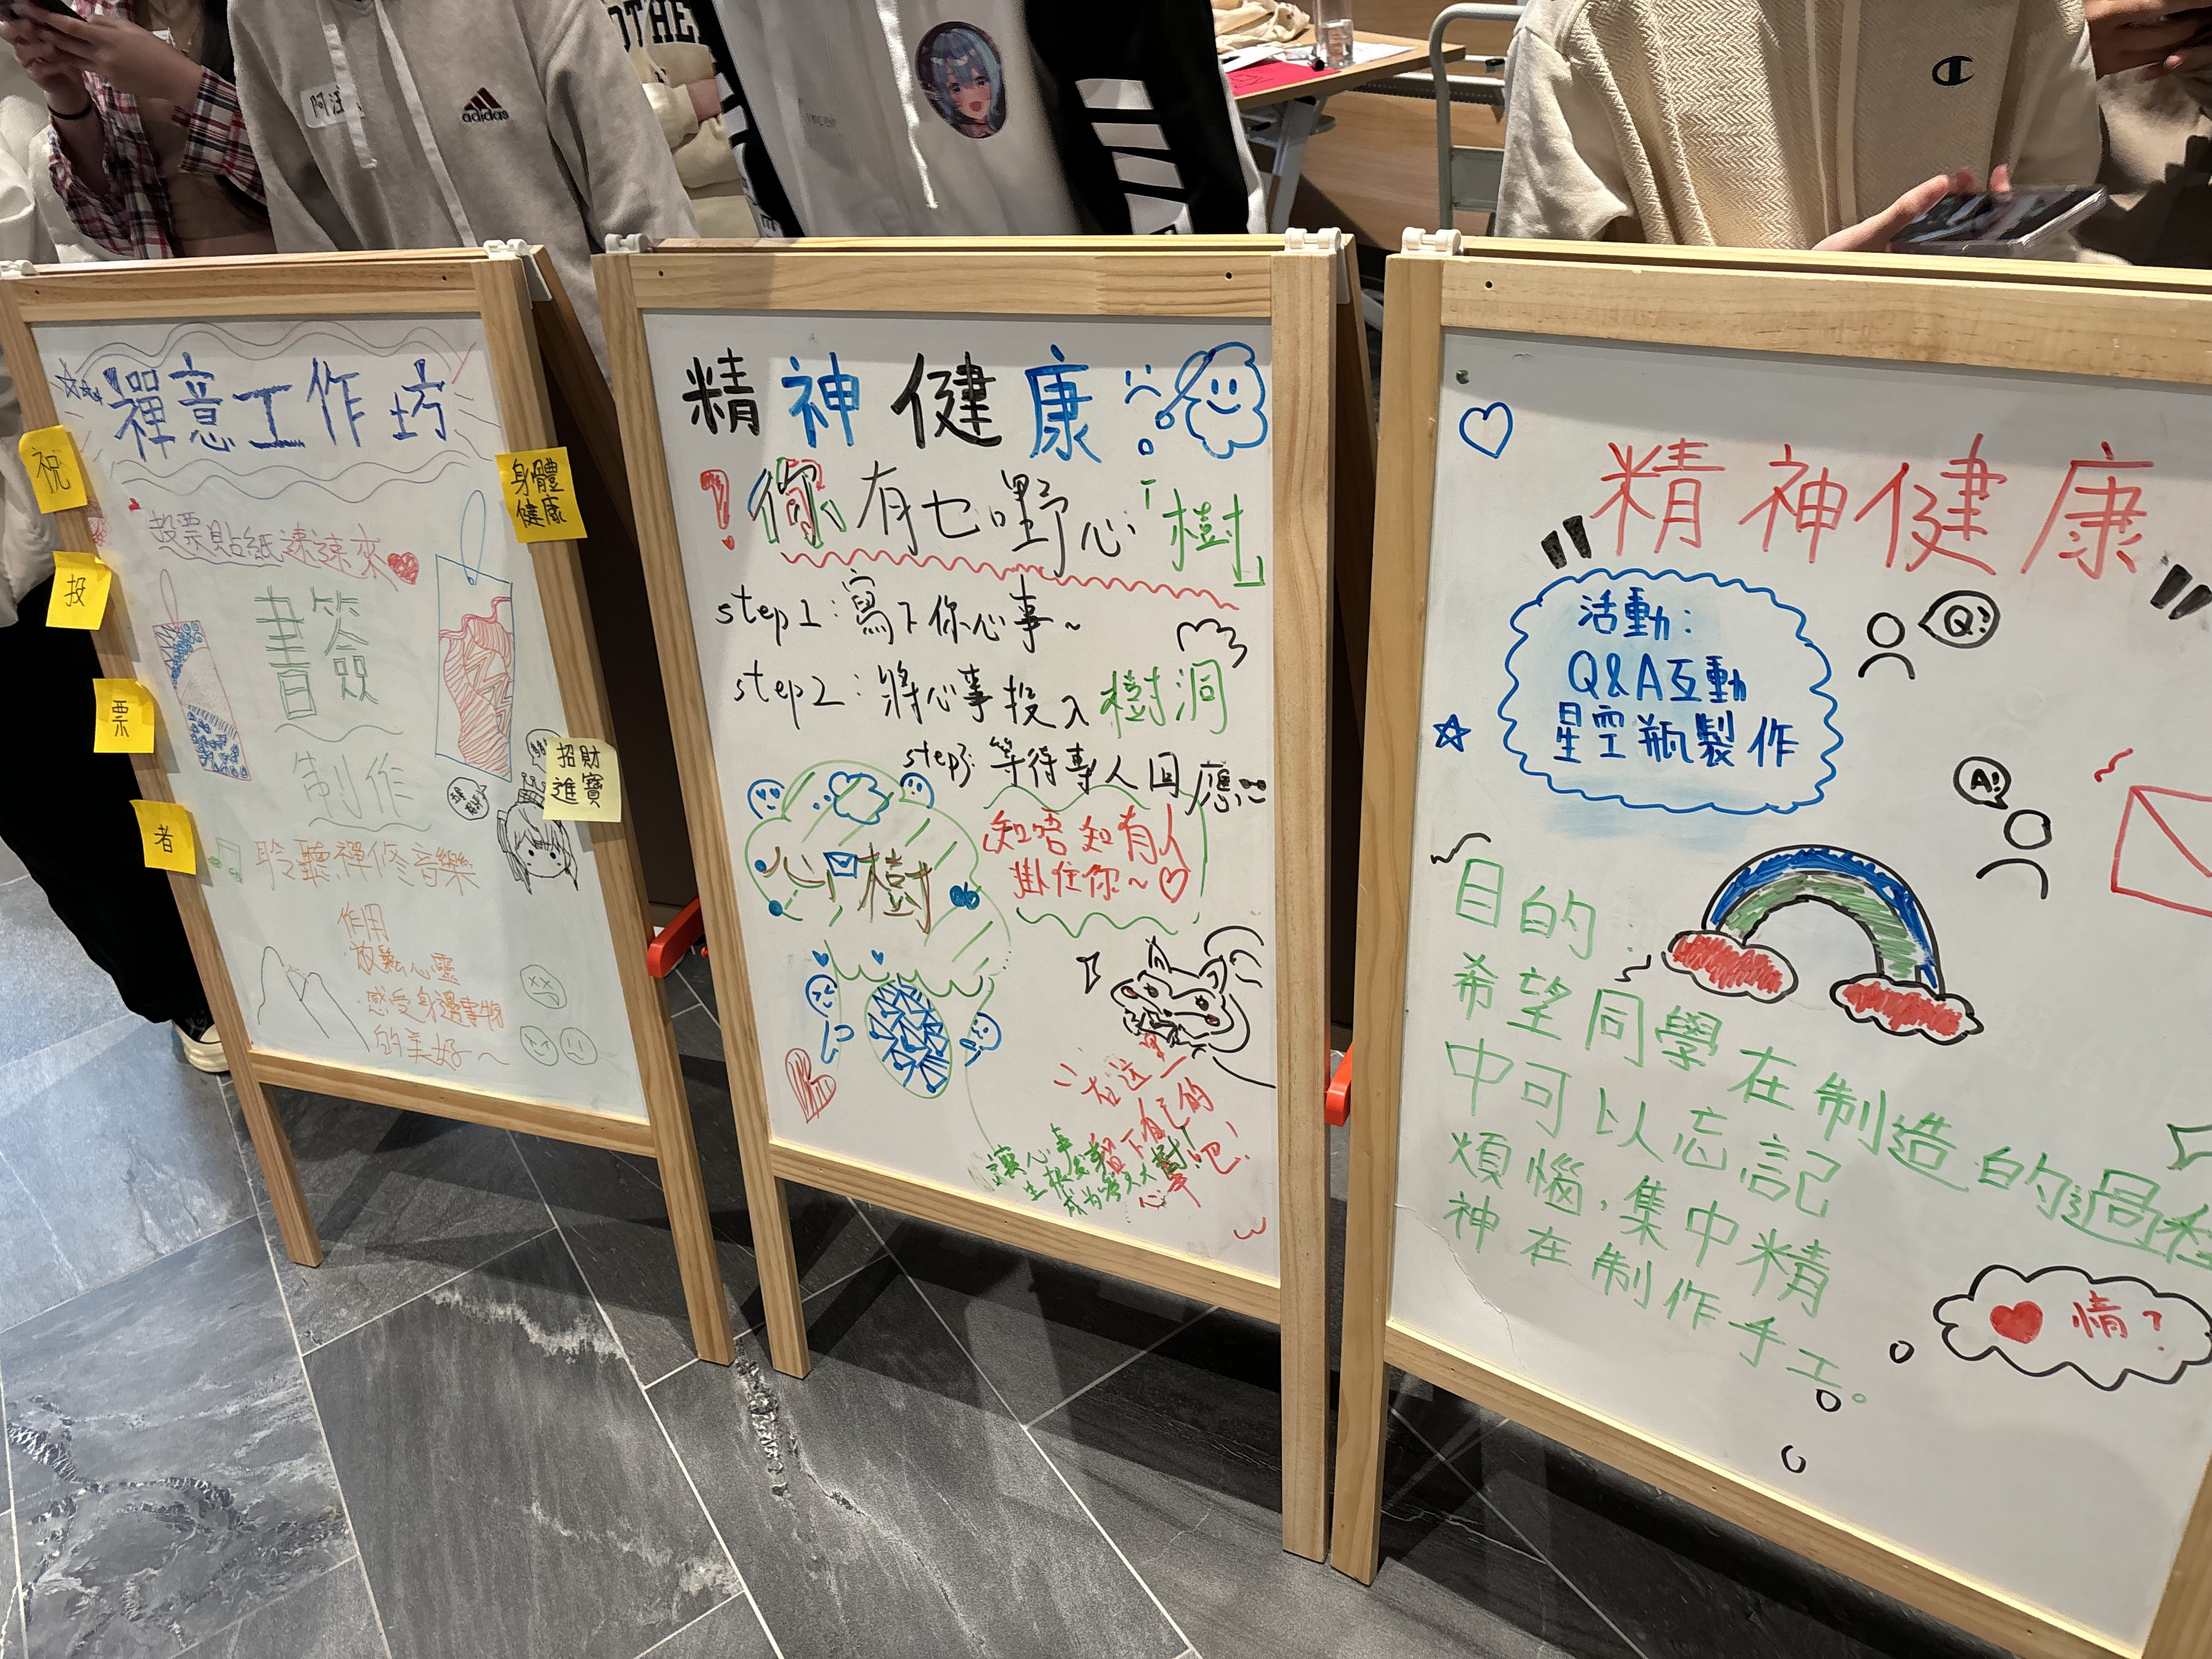 adidas
禪意工作坊
祝
投
票
者
身體
健康
招財
進寶
投票貼紙速速來
書簽
制作
聆聽禪修音樂
作用
放鬆心靈
感受身邊事物
的美好～
精神健康
！你有乜嘢心「樹」
step1：寫下你心事～
step2：將心事投入樹洞
step3：等待專人回應
心樹
知唔知有人
掛住你～
在这里
留下自己的
心事吧！
讓心事
精神健康
活動：
Q&A互動
星空瓶製作
Q?
A!
目的：
希望同學在制造的過程
中可以忘記
煩惱，集中精
神在制作手工。
情？